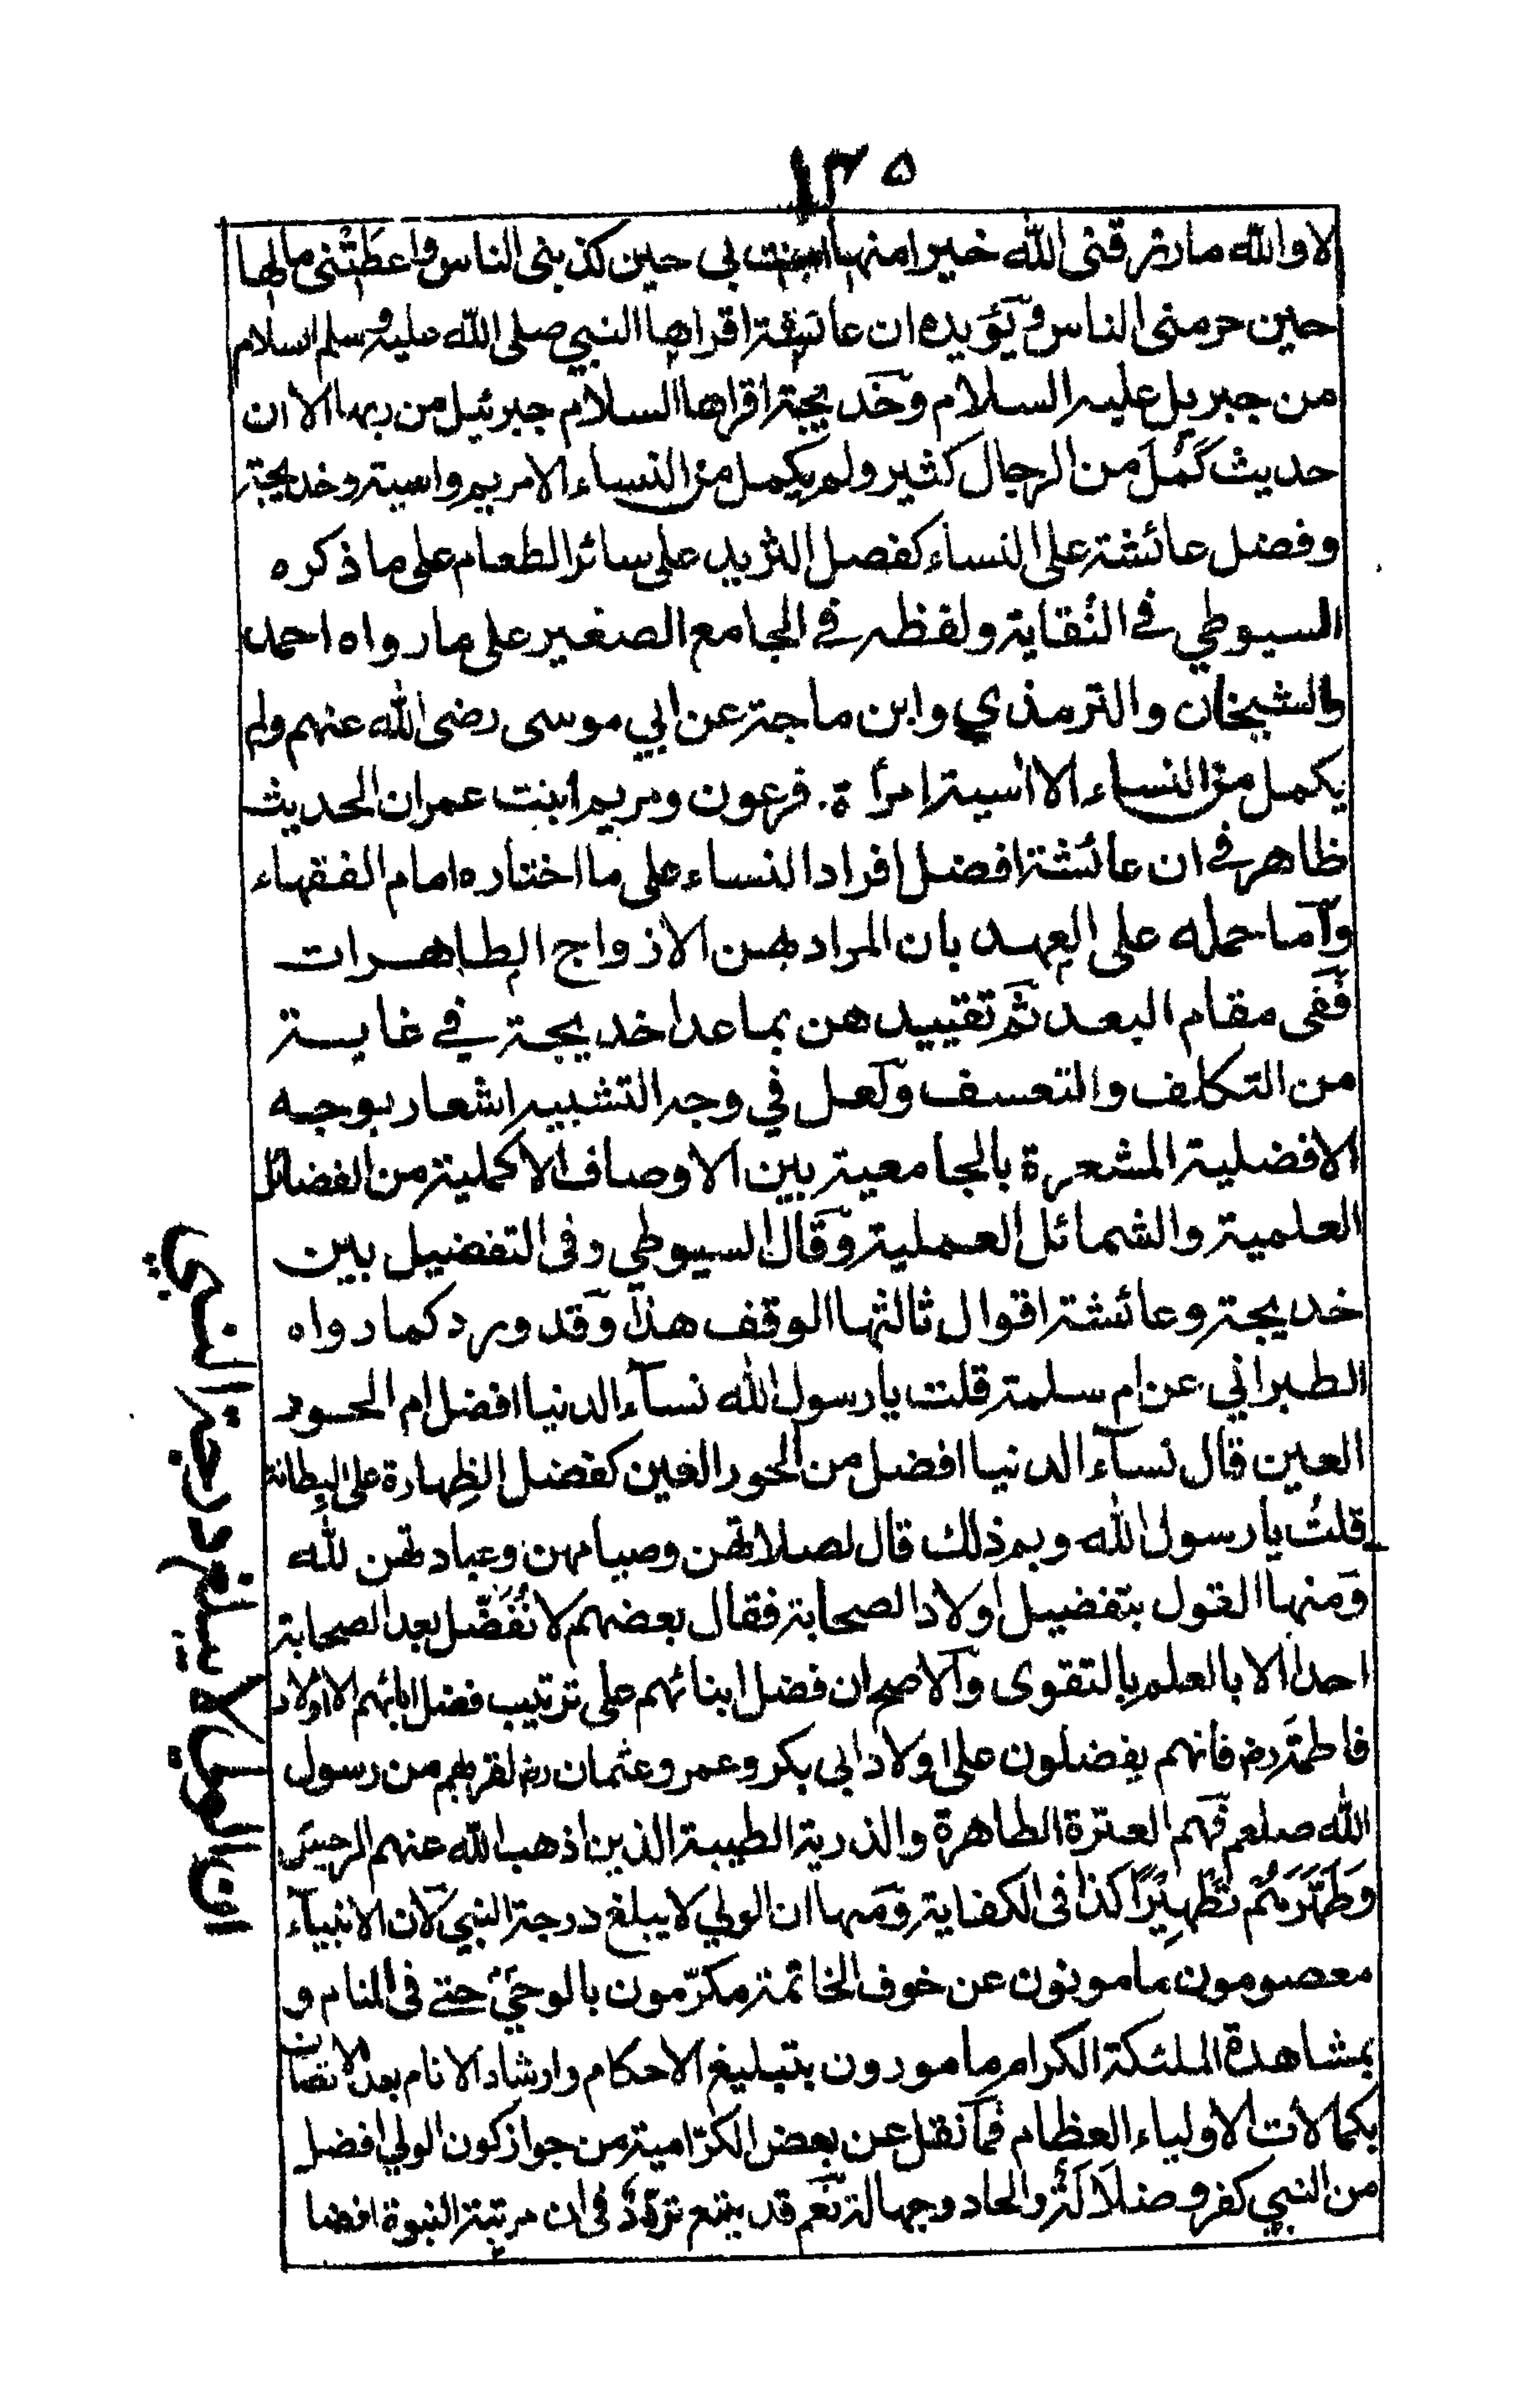 ١٣٥
لا والله ما رزقنى الله خيرا منها امنت بى حين كذبنى الناس واعطتنى مالها
حين حرمنى الناس ويؤيده ان عائشة اقراها النبي صلى الله عليه وسلم السلام
من جبريل عليه السلام وخديجة اقراها السلام جبرئيل من ربها الا ان
حديث كَمُلَ من الرجال كثير ولم يكمل من النساء الا مريم واسية وخديجة
وفضل عائشة على النساء كفضل الثريد على سائر الطعام على ما ذكره
السيوطي في النُقاية ولفظه في الجامع الصغير على ما رواه احمد
والشيخان والترمذي وابن ماجة عن ابي موسى رضى الله عنهم ولم
يكمل من النساء الا اسية امرأة فرعون ومريم ابنت عمران الحديث
ظاهر في ان عائشة افضل افراد النساء على ما اختاره امام الفقهاء
وأما حمله على العهد بان المراد بهن الازواج الطاهرات
ففى مقام البعد ثم تقييدهن بما عدا خديجة في غاية
من التكلف والتعسف ولعل في وجه التشبيه اشعار بوجه
الافضلية المشعرة بالجامعية بين الاوصاف الاكملية من الفضائل
العلمية والشمائل العملية وقال السيوطي وفى التفضيل بين
خديجة وعائشة اقوال ثالثها الوقف هذا وقد ورد كما رواه
الطبراني عن ام سلمة قلت يا رسول الله نسآء الدنيا افضل ام الحور
العين قال نسآء الدنيا افضل من الحور العين كفضل الظِهارة على البطانة
قلتُ يا رسول الله وبم ذلك قال لصلاتهن وصيامهن وعبادتهن لله
ومنها القول بتفضيل اولاد الصحابة فقال بعضهم لا نُفَضِّل بعد الصحابة
احدا الا بالعلم بالتقوى والاصح ان فضل ابنائهم على ترتيب فضل ابائهم الا اولاد
فاطمة رض فانهم يفضلون على اولاد ابى بكر وعمر وعثمان رض لقربهم من رسول
الله صلعم فهم العترة الطاهرة والذرية الطيبة الذين اذهب الله عنهم الرجسَ
وَطَهَّرَهُمْ تَطْهِيْرًا كذا فى الكفاية ومنها ان الولي لا يبلغ درجة النبي لان الانبيآء
معصومون مامونون عن خوف الخاتمة مكرّمون بالوحيِ حتے فى المنام و
بمشاهدة الملئكة الكرام مامورون بتبليغ الاحكام وارشاد الانام بعد الاتصاف
بكمالات الاولياء العظام فما نقل عن بعض الكرّامية من جواز كون الولي افضل
من النبي كفر وضلالة والحاد وجهالة نعم قد يقع تردّد فى ان مرتبة النبوة افضل
ان الولي لا يبلغ درجة النبي